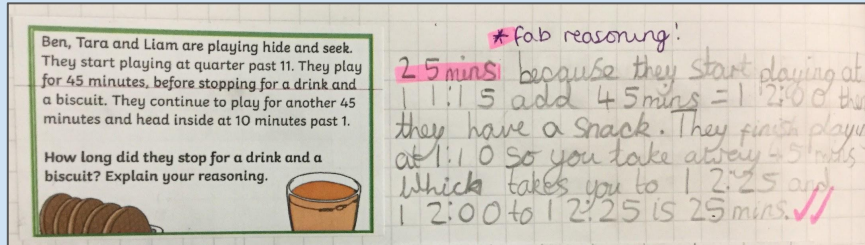 Ben, Tara and Liam are playing hide and seek.
They start playing at quarter past 11. They play
for 45 minutes, before stopping for a drink and
a biscuit. They continue to play for another 45
minutes and head inside at 10 minutes past 1.
How long did they stop for a drink and a
biscuit? Explain your reasoning.
*fab reasoning!
25mins because they start playing at
11:15 add 45mins = 12:00
they have a snack. They finish
at 1:10 so you take away 45 mins
Which takes you to 12:25 and
12:00 to 12:25 is 25 mins.